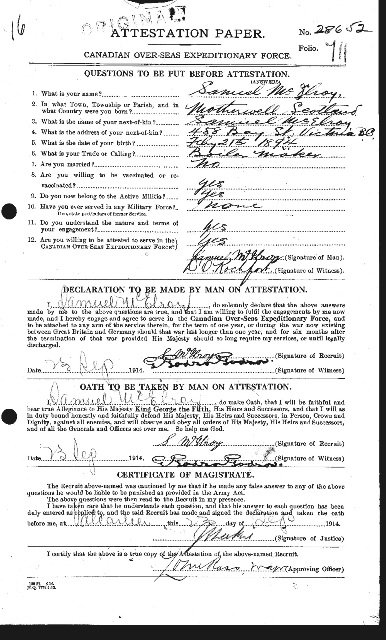 16
ORIGINAL
ATTESTATION PAPER.
No. 28652
Folio. 711
CANADIAN OVER-SEAS EXPEDITIONARY FORCE.
QUESTIONS TO BE PUT BEFORE ATTESTATION.
(ANSWERS)
1. What is your name? Samuel McElroy
2. In what Town, Township or Parish, and in
what Country were you born? Motherwell Scotland
3. What is the name of your next-of-kin? Samuel McElroy
4. What is the address of your next-of-kin? 483 Bay St, Victoria BC
5. What is the date of your birth? 21st 1894
6. What is your Trade or Calling? Boiler maker
7. Are you married? no
8. Are you willing to be vaccinated or re-
vaccinated? yes
9. Do you now belong to the Active Militia? Yes
10. Have you ever served in any Military Force? none
11. Do you understand the nature and terms of
your engagement? yes
12. Are you willing to be attested to serve in the
CANADIAN OVER-SEAS EXPEDITIONARY FORCE? Yes
Samuel McElroy (Signature of Man).
(Signature of Witness).
DECLARATION TO BE MADE BY MAN ON ATTESTATION.
I, Samuel McElroy, do solemnly declare that the above answers
made by me to the above questions are true, and that I am willing to fulfil the engagements by me now
made, and I hereby engage and agree to serve in the Canadian Over-Seas Expeditionary Force, and
to be attached to any arm of the service therein, for the term of one year, or during the war now existing
between Great Britain and Germany should that war last longer than one year, and for six months after
the termination of that war provided His Majesty should so long require my services, or until legally
discharged.
S McElroy (Signature of Recruit)
Date 23 Sep 1914. (Signature of Witness)
OATH TO BE TAKEN BY MAN ON ATTESTATION.
I, Samuel McElroy, do make Oath, that I will be faithful and
bear true Allegiance to His Majesty King George the Fifth, His Heirs and Successors, and that I will as
in duty bound honestly and faithfully defend His Majesty, His Heirs and Successors, in Person, Crown and
Dignity, against all enemies, and will observe and obey all orders of His Majesty, His Heirs and Successors,
and of all the Generals and Officers set over me. So help me God.
S McElroy (Signature of Recruit)
Date 23 Sep 1914. (Signature of Witness)
CERTIFICATE OF MAGISTRATE.
The Recruit above-named was cautioned by me that if he made any false answer to any of the above
questions he would be liable to be punished as provided in the Army Act.
The above questions were then read to the Recruit in my presence.
I have taken care that he understands each question, and that his answer to each question has been
duly entered as replied to, and the said Recruit has made and signed the declaration and taken the oath
before me, at Valcartier this 23 day of Sep 1914.
(Signature of Justice)
I certify that the above is a true copy of the Attestation of the above-named Recruit.
John Ross (Approving Officer)